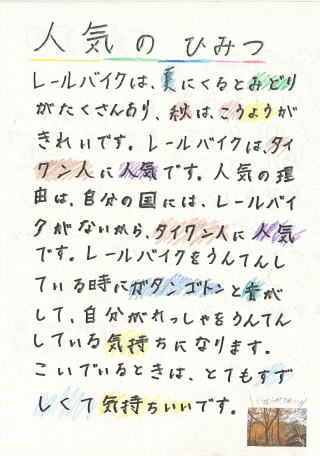 人気のひみつ
レールバイクは、夏にくるとみどり
がたくさんあり、秋は、こうようが
きれいです。レールバイクは、タイ
ワン人に人気です。人気の理
由は、自分の国には、レールバイ
クがないから、タイワン人に人気
です。レールバイクをうんてんし
ている時にガタンゴトンと音が
して、自分がれっしゃをうんてん
している気持ちになります。
こいでいるときは、とてもすず
しくて気持ちいいです。